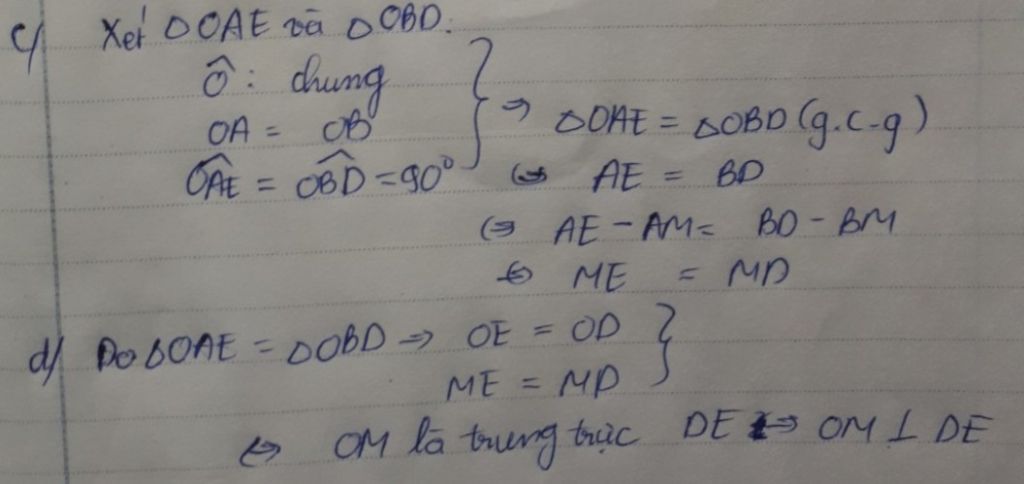 c/ Xét ΔOAE và ΔOBD.
Ô : chung
OA = OB
⇒ ΔOAE = ΔOBD (g.c-g)
OAE = OBD = 90° ⇔ AE = BD
⇔ AE - AM = BD - BM
⇔ ME = MD
d/ Do ΔOAE = ΔOBD ⇒ OE = OD
ME = MD
⇔ OM là trung trực DE ⇔ OM ⊥ DE